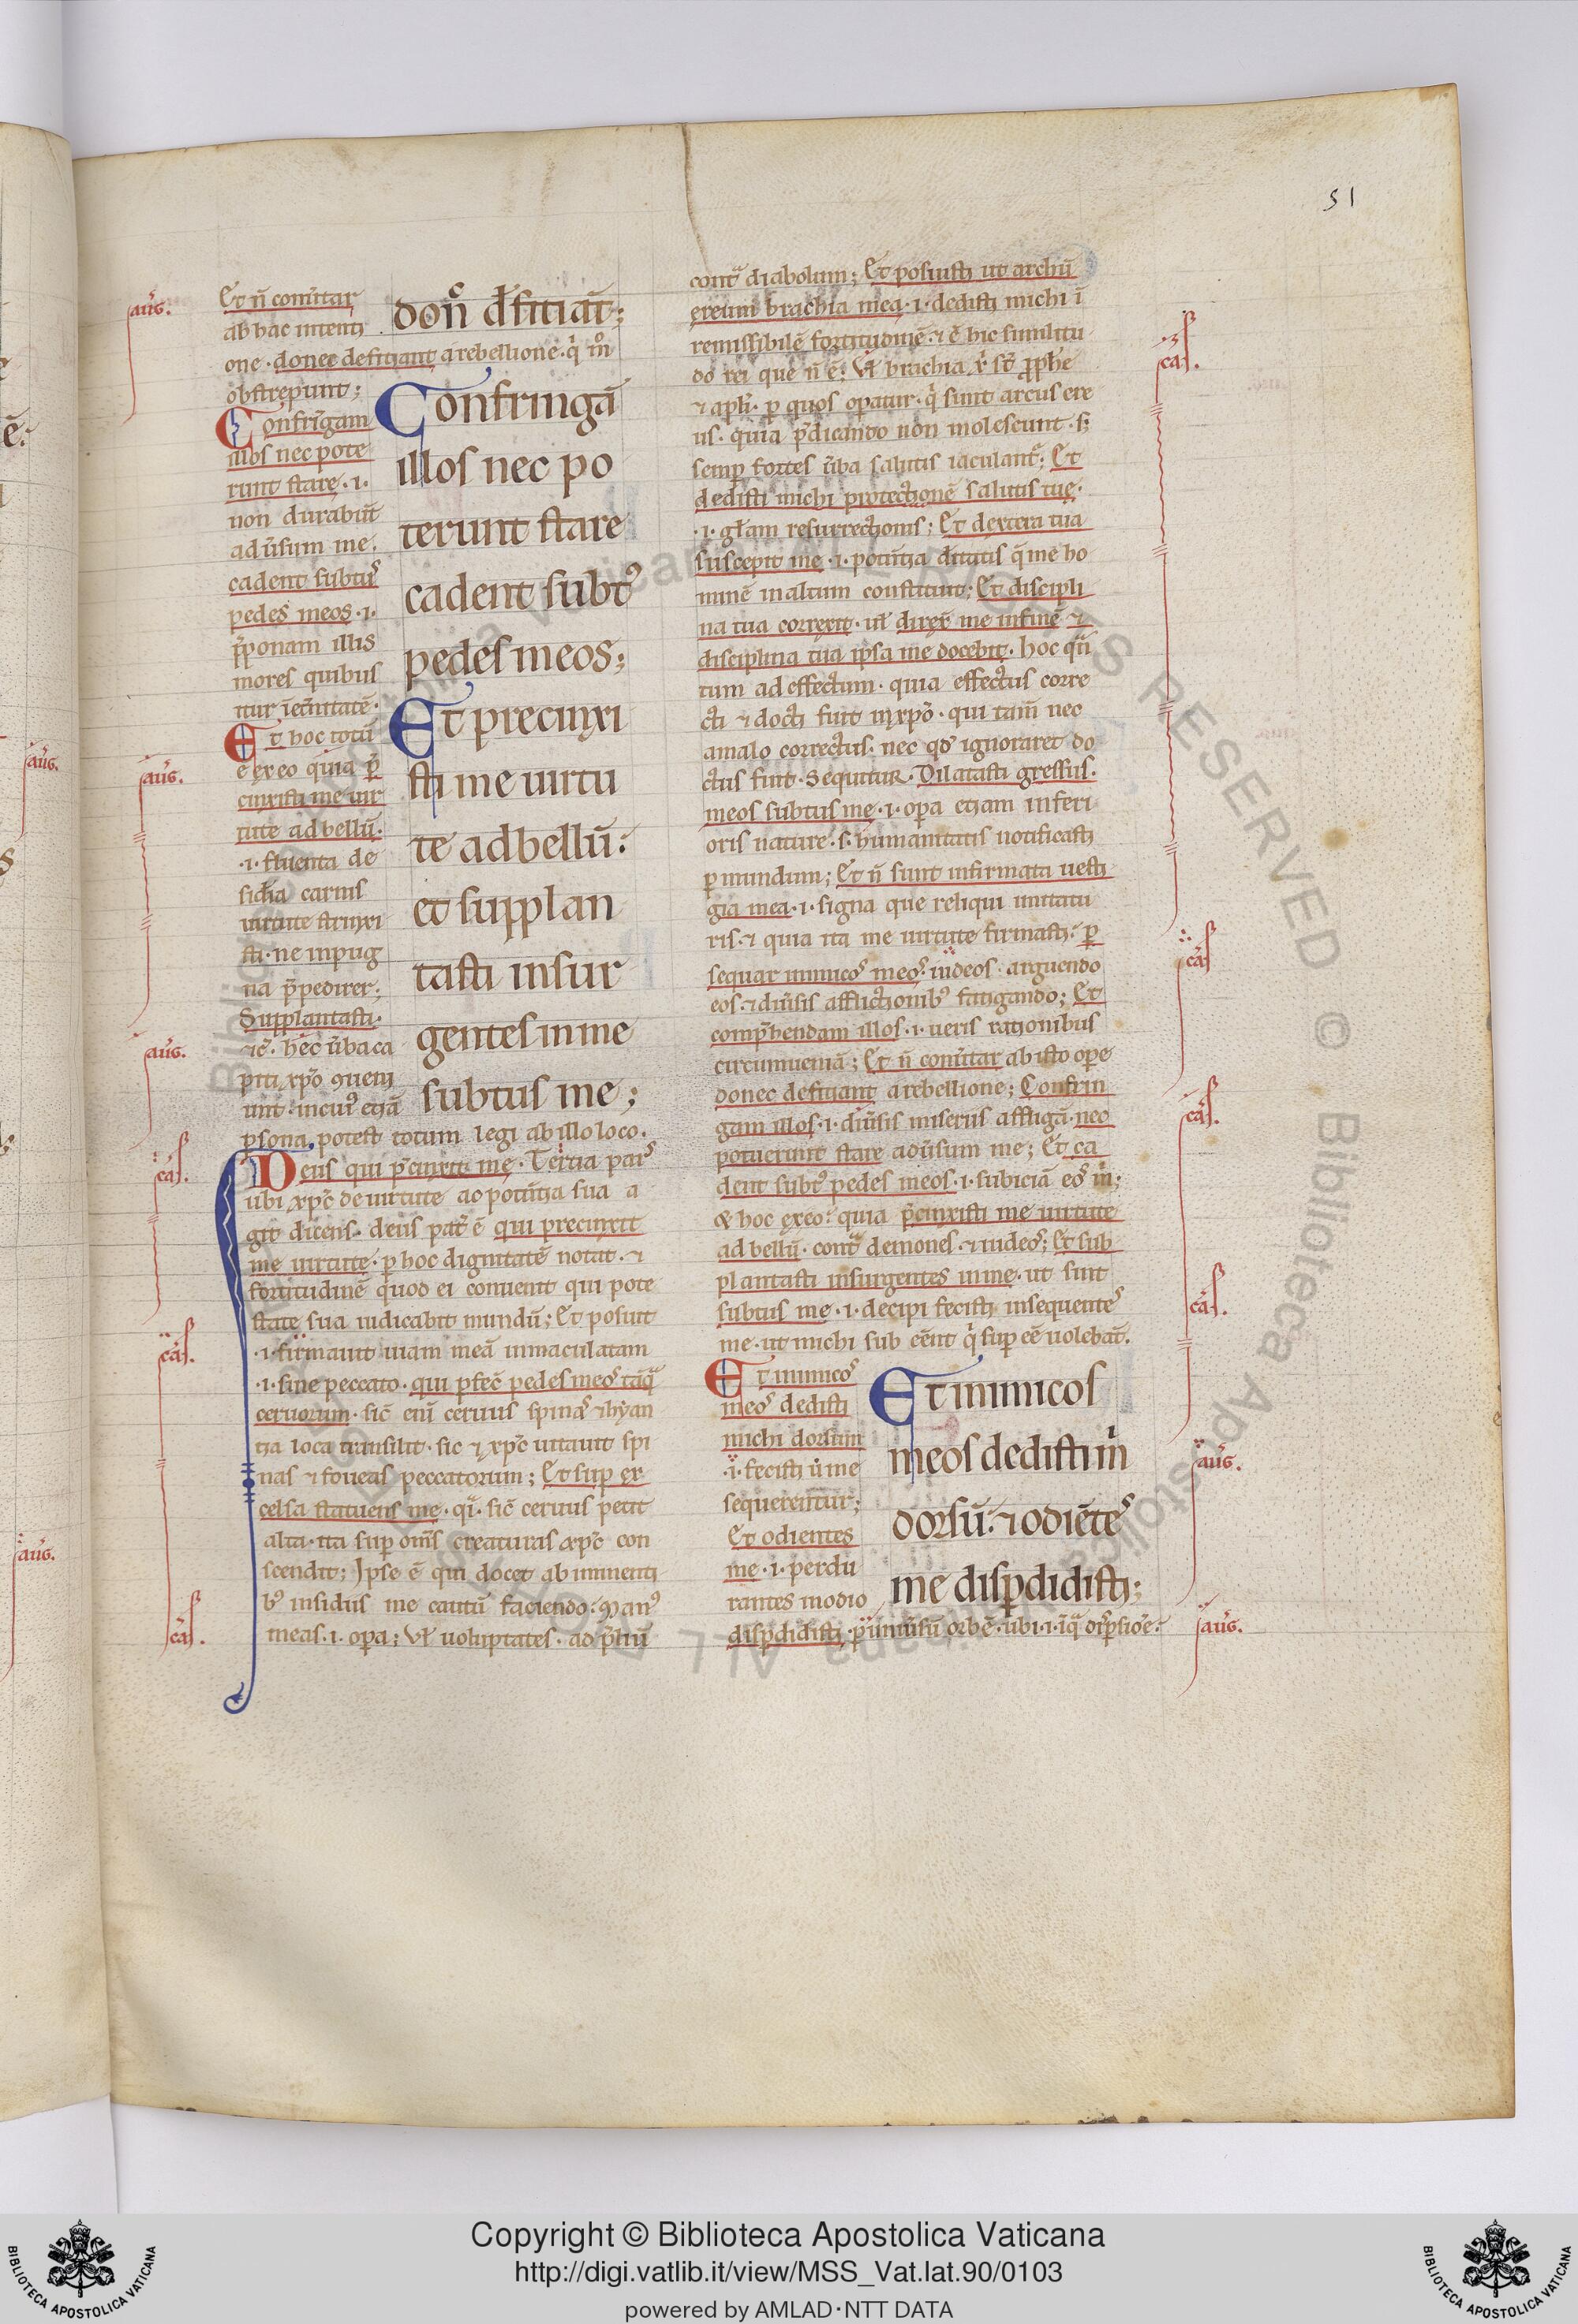 51
aug̃.
Et ñ conũtar
ab hac intenti
one · donec deficiant a rebellione · q̇ m̊
obstrepunt;
donͨ d̵ficiāt;
Confrīgam
illos nec pote
runt stare · i ·
non durabūt
adũsum me.
cadent subtus᾽
pedes meos · i ·
p̄ponam illis
mores quibus
itur ī et̃nitatē ·
Confringā
illos nec po
terunt stare
cadent subt᾽
pedes meos;
aug̃.
Et hoc totū
ē ex eo quia p̄
cinxisti me uir
tute ad bellū.
· i · fluenta de
sid̃ia carnis
uirtute strinxi
sti · ne in pug
na p̄pedirer;
aug̃.
Supplantasti ·
⁊c̃ · hec ũba ca
piti xp̄o ꝯueni
unt · in cui᾽ etiā
ꝑsona potest totum legi ab illo loco.
Et precinxi
sti me uirtu
te ad bellū:
et supplan
tasti insur
gentes in me
subtus me;
cas̃.
Deus qui p̄cinxit me · Tertia pars
ubi xp̄c de uirtute ac potñtia sua a
git dicens · deus pat̃ ē qui precinxit
me uirtute · ꝑ hoc dignitatē notat · ⁊
fortitudinē quod ei conuenit qui pote
state sua iudicabit mundū; Et posuit
cas̃.
· i · firmauit uiam meā inmaculatam
· i · sine peccato · qui ꝑfec̄ pedes meos tāqͣ
ceruorum · sic̄ enī ceruus spinas ⁊ hyan
tia loca transilit · sic ⁊ xp̄c uitauit spi
nas ⁊ foueas peccatorum; Et suꝑ ex
celsa statuens me · qͥ · sic̄ ceruus petit
alta · ita suꝑ om̄s creaturas xp̄c con
scendit; Ipse ē qui docet ab imminenti
cas̃.
b᾽ insidiis me cautū faciendo · man᾽
meas · i · oꝑa; Vl̵ uoluptates · ad p̄liū
contͣ diabolum; Et posuisti ut archū
ereum brachia mea · i · dedisti michi ī
cas̃.
remissibilē fortitudinē · ⁊ ē hic similitu
do rei que ñ ē: Vl̵ brachia x̓ s̄t ꝓph̵e
⁊ apl̵i · ꝑ quos oꝑatur · q̇ sunt arcus ere
us · quia p̄dicando non molescunt · s;
semꝑ fortes ũba salutis iaculant̃; Et
dedisti michi protectionē salutis tue ·
· i · gl̵am resurrectionis; Et dextera tua
suscepit me · i · potñtia diuitis q̄ me ho
minē in altum constituit; Et discipli
na tua correxit · ul̵ direx̃ me in finē ⁊
disciplina tua ipsa me docebit · hoc qͣn
tum ad effectum · quia effectus corre
cti ⁊ docti fuit in xp̄o · qui tam̄ nec
a malo correctus · nec qđ ignoraret do
ctus fuit · Sequitur · Dilatasti gressus ·
meos subtus me · i · oꝑa etiam inferi
oris nature · s · humanitatis notificasti
ꝑ mundum; Et ñ sunt infirmata uesti
gia mea · i · signa que reliqui imitatu
ris · ⁊ quia ita me uirtute firmasti: ꝑ
cas̃
sequar inimicos meos · iudeos · arguendo
eos · ⁊ diũsis afflictionib᾽ fatigando; Et
comp̄hendam illos · i · ueris rationibus
circumueniā; Et ñ conũtar ab isto oꝑe
donec deficiant a rebellione; Confrin
cas̃.
gam illos · i · diũsis miseriis affligā · nec
potuerunt stare adũsum me; Et ca
dent subt᾽ pedes meos · i · subiciā eos m̓;
& hoc exeo: quia p̄cinxisti me uirtute
ad bellū · contͣ demones · ⁊ iudeos; Et sub
plantasti insurgentes in me · ut sint
cas̃.
subtus me · i · decipi fecisti insequentes
me · ut michi sub eēnt q̇ suꝑ eē uolebāt.
Et inimicos
meos dedisti
michi dorsum
aug̃.
· i · fecisti ut me
sequerentur;
Et odientes
me · i · perdu
rantes in odio
aug̃.
disꝑdidisti · ꝑ uniũsū orbē · ubi · i · ī qͣ disꝑsioē.
Et inimicos
meos dedisti m̓
dorsū: ⁊ odiētes
me disꝑdidisti;
Copyright © Biblioteca Apostolica Vaticana
http://digi.vatlib.it/view/MSS_Vat.lat.90/0103
powered by AMLAD·NTT DATA